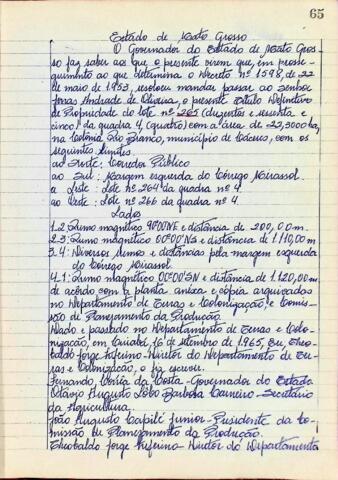 65
Estado de Mato Grosso
O Governador do Estado de Mato Gros-
so faz saber aos que o presente virem que, em prosse-
guimento ao que determina o Decreto nº 1598, de 22
de maio de 1953, resolveu mandar passar ao senhor
Jonas Andrade de Oliveira, o presente Título Definitivo
de Propriedade do lote nº 265 (duzentos e sessenta e
cinco) da quadra 4 (quatro) com a área de 22,3000 ha,
na Colônia Rio Branco, município de Cáceres, com os
seguintes limites.
ao Norte: Corredor Público
ao Sul: Margem esquerda do Córrego Mirassol.
a Leste: Lote nº 264 da quadra nº 4.
ao Oeste: Lote nº 266 da quadra nº 4.
Lados
1.2: Rumo magnético 90º00'NE e distância de 200,00m.
2.3: Rumo magnético 00º00'NS e distância de 1.110,00m
3.4: Diversos rumos e distâncias pela margem esquerda
do Córrego Mirassol.
4.1: Rumo magnético 00º00'SN e distância de 1.120,00m
de acordo com a planta anexa e cópia arquivados
no Departamento de Terras e Colonização, e Comis-
são de Planejamento da Produção.
Dado e passado no Departamento de Terras e Colo-
nização, em Cuiabá, 16 de setembro de 1965, Eu, Theo-
baldo Jorge Diretor do Departamento de Ter-
ras e Colonização, o fiz escrever.
Fernando Corrêa da Costa - Governador do Estado
Otávio Augusto Lôbo Barbosa Carneiro - Secretário
da Agricultura.
João Augusto Capilé Junior - Presidente da Co-
missão de Planejamento da Produção.
Theobaldo Jorge Diretor do Departamento